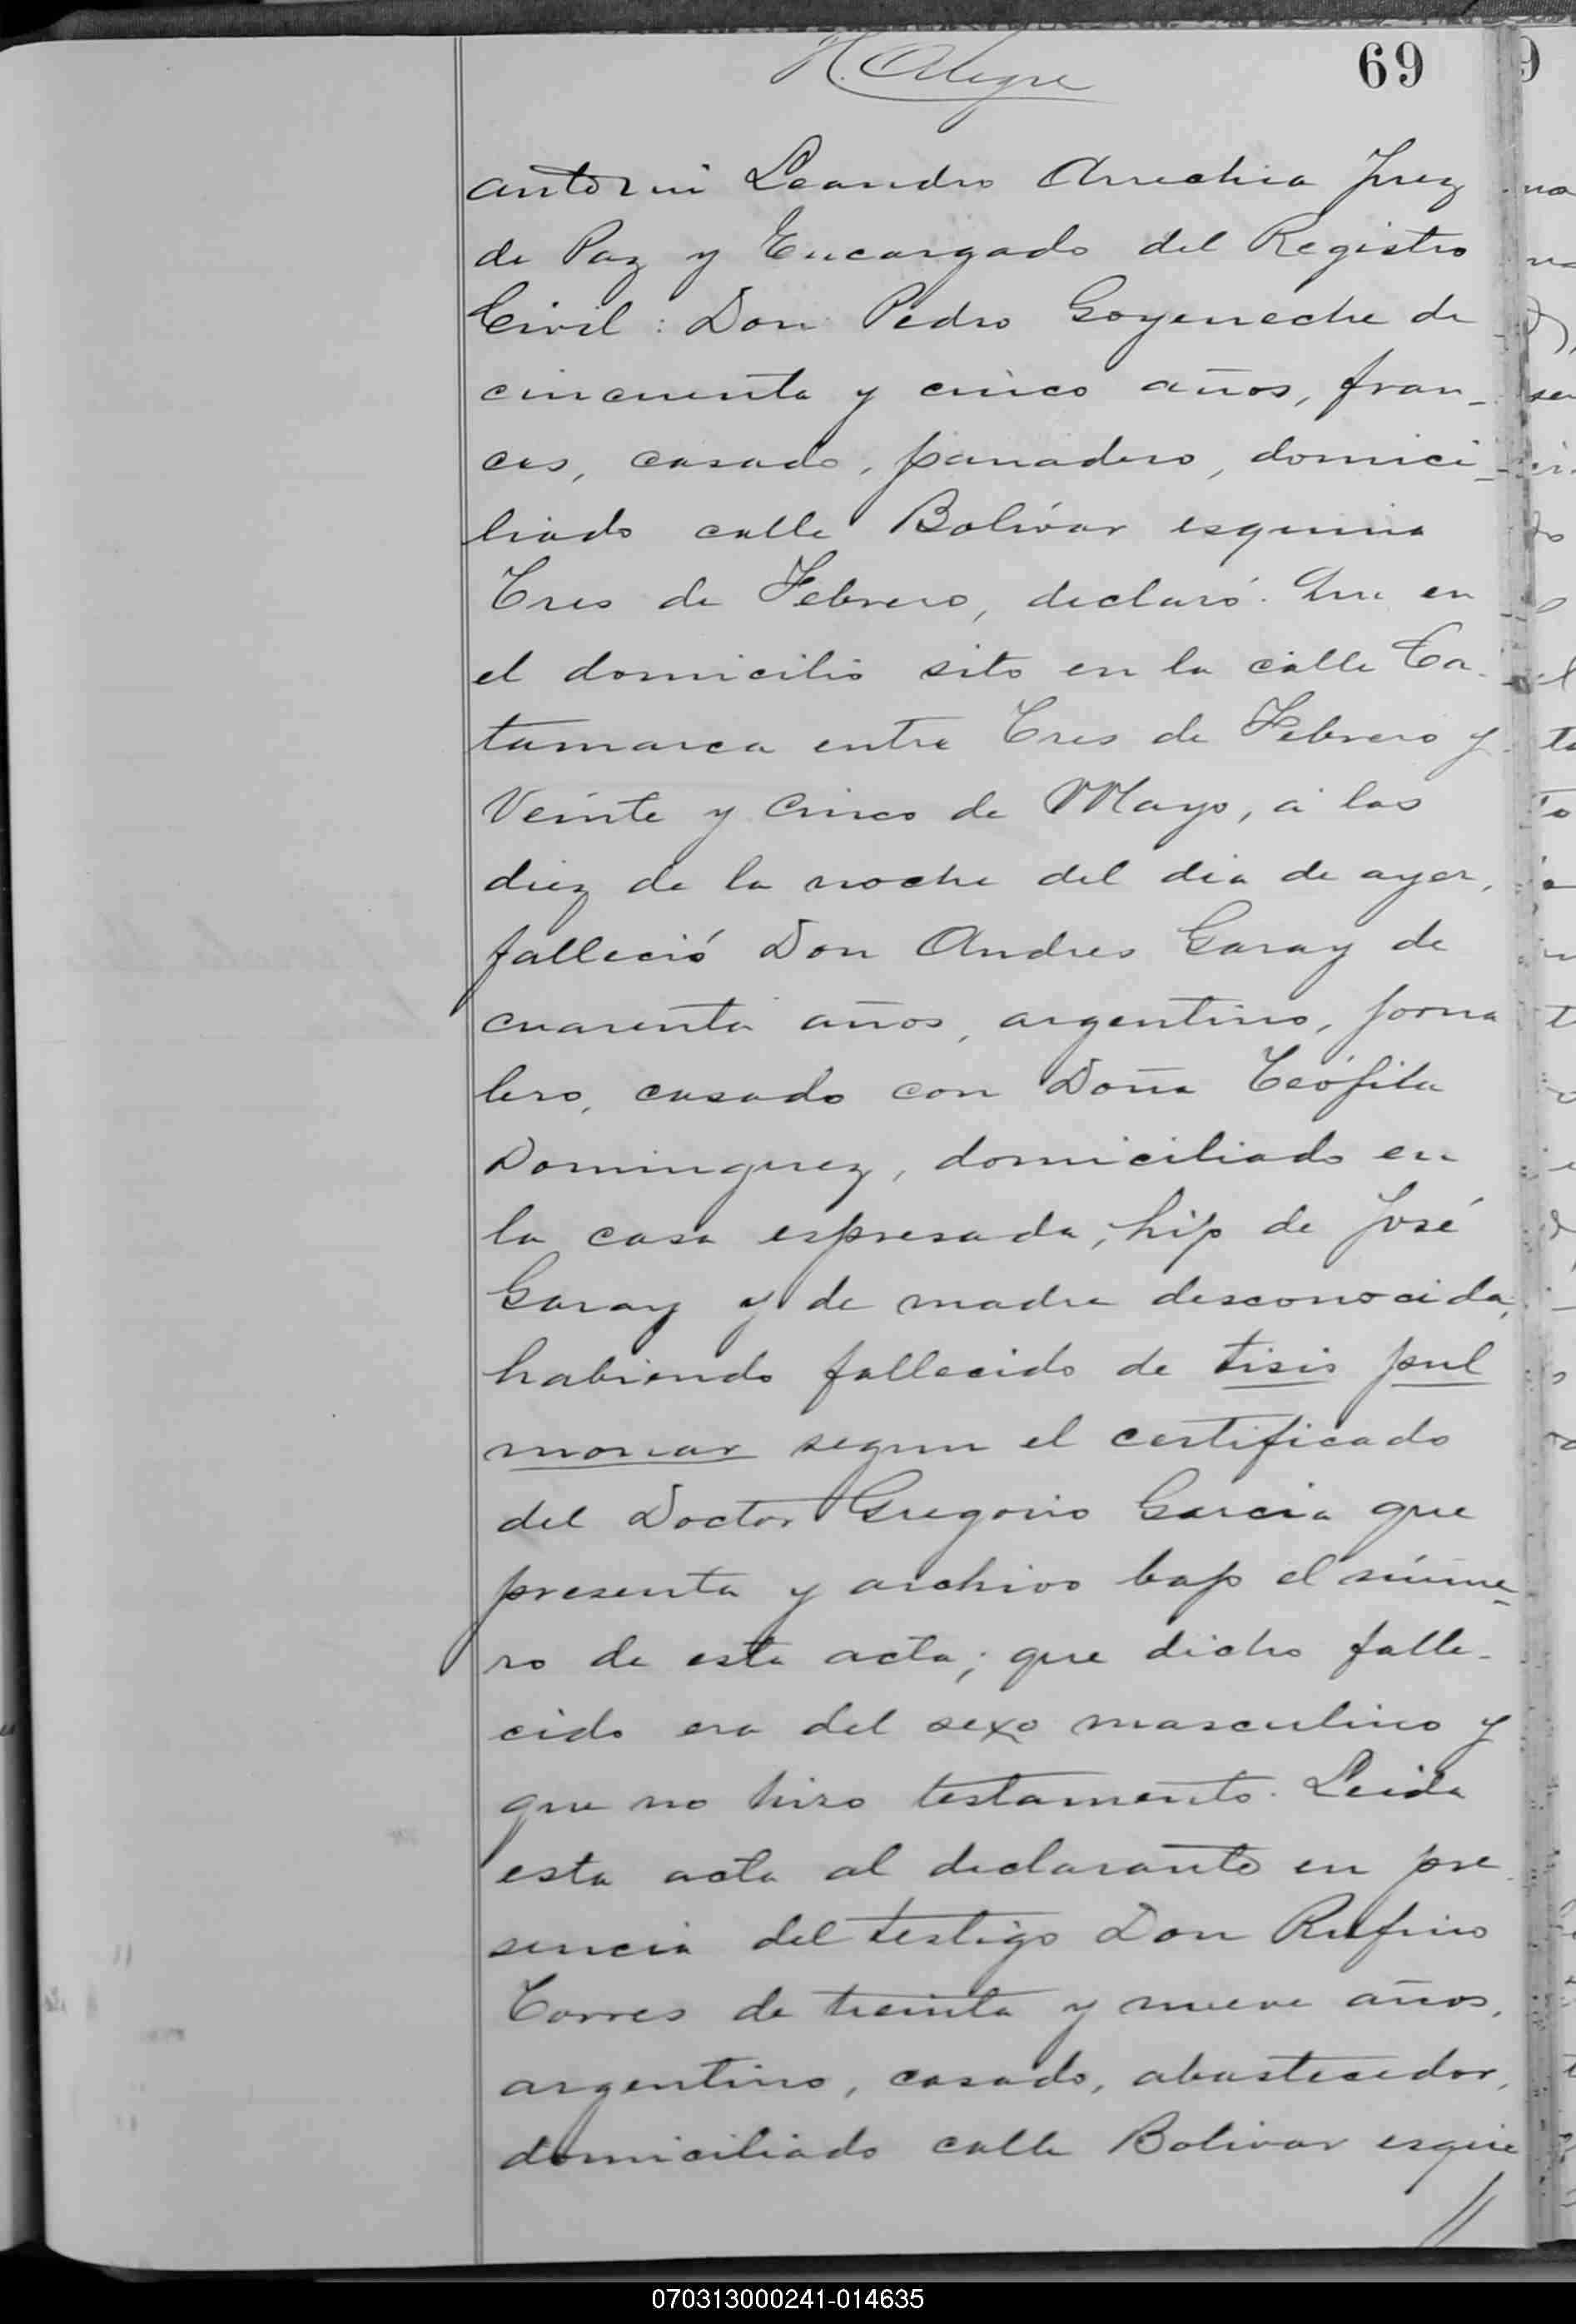 H. Alegre
69
ante mi Leandro Arrechia Juez
de Paz y Encargado del Registro
Civil: Don Pedro Goyeneche de
cincuenta y cinco años, fran-
ces, casado, panadero, domici-
liado calle Bolívar esquina
Tres de Febrero, declaró: Que en
el domicilio sito en la calle Ca-
tamarca entre Tres de Febrero y
Veinte y Cinco de Mayo, á las
diez de la noche del dia de ayer,
falleció Don Andres Garay de
cuarenta años, argentino, jorna
lero, casado con Doña Teófila
Dominguez, domiciliado en
la casa espresada, hijo de José
Garay y de madre desconocida,
habiendo fallecido de tisis pul
monar segun el certificado
del Doctor Gregorio Garcia que
presenta y archivo bajo el núme-
ro de esta acta; que dicho falle-
cido era del sexo masculino y
que no hizo testamento. Leida
esta acta al declarante en pre
sencia del testigo Don Rufino
Torres de treinta y nueve años,
argentino, casado, abastecedor,
domiciliado calle Bolivar esqui
//
070313000241-014635